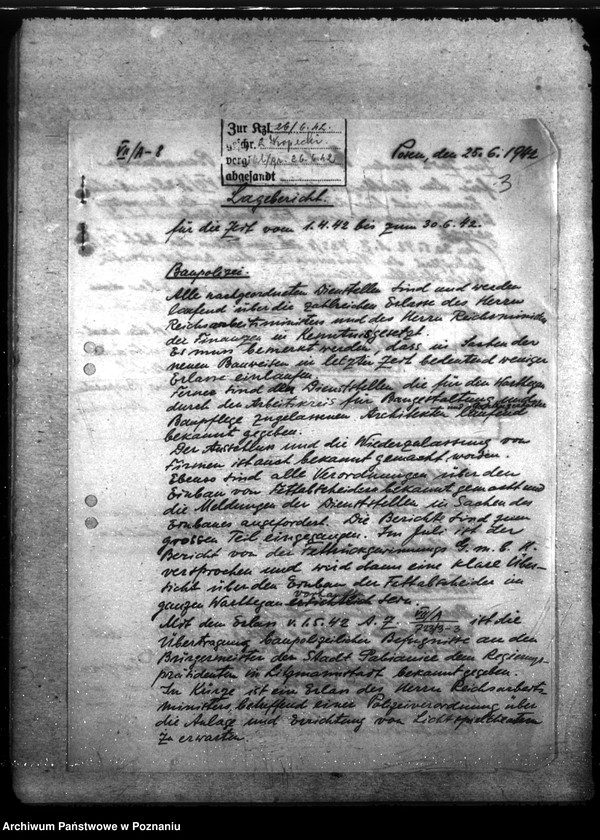 VII/A-8
Zur Kzl. 26/6.42.
vergl. 26.6.42
abgesandt
Posen, den 25.6.1942
3
Lagebericht.
für die Zeit vom 1.4.42 bis zum 30.6.42.
Baupolizei.
Alle nachgeordneten Dienststellen sind und werden
laufend über die zahlreichen Erlasse des Herrn
Reichsarbeitsministers und des Herrn Reichsministers
der Finanzen in Kenntnis gesetzt.
Es muss bemerkt werden, dass in Sachen der
neuen Bauweisen in letzter Zeit bedeutend weniger
Erlasse einlaufen.
Ferner sind den Dienststellen die für den Warthegau
durch den Arbeitskreis für Baugestaltung und
Baupflege zugelassenen Architekten laufend
bekannt gegeben.
Der Ausschluss und die Wiederzulassung von
Firmen ist auch bekannt gemacht worden.
Ebenso sind alle Verordnungen über den
Einbau von Fettabscheidern bekannt gemacht und
die Meldungen der Dienststellen in Sachen des
Einbaues angefordert. Die Berichte sind zum
grossen Teil eingegangen. Im Juli ist der
Bericht von der Fettrückgewinnungs G.m.b.H.
versprochen und wird dann eine klare Über-
sicht über den Einbau der Fettabscheider im
ganzen Warthegau vorhanden sein.
Mit dem Erlass v. 1.5.42 A.Z. VII/A ist die
Übertragung baupolizeilicher Befugnisse an den
Bürgermeister der Stadt Pabianice dem Regierungs-
präsidenten in Litzmannstadt bekannt gegeben.
In Kürze ist ein Erlass des Herrn Reichsarbeits-
ministers, betreffend einer Polizeiverordnung über
die Anlage und Errichtung von Lichtspieltheatern
zu erwarten.
Archiwum Państwowe w Poznaniu